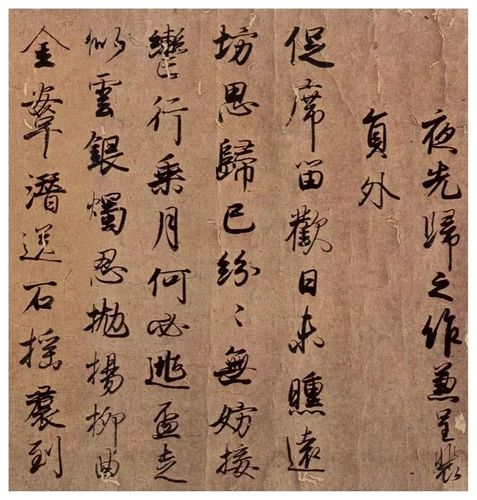 夜先歸之作兼呈裴
員外
促席留歡日未曛遠
坊思歸已紛〻無妨按
轡行乘月何必逃盃走
似雲銀燭忍拋楊柳曲
金鞍潛送石榴裠到